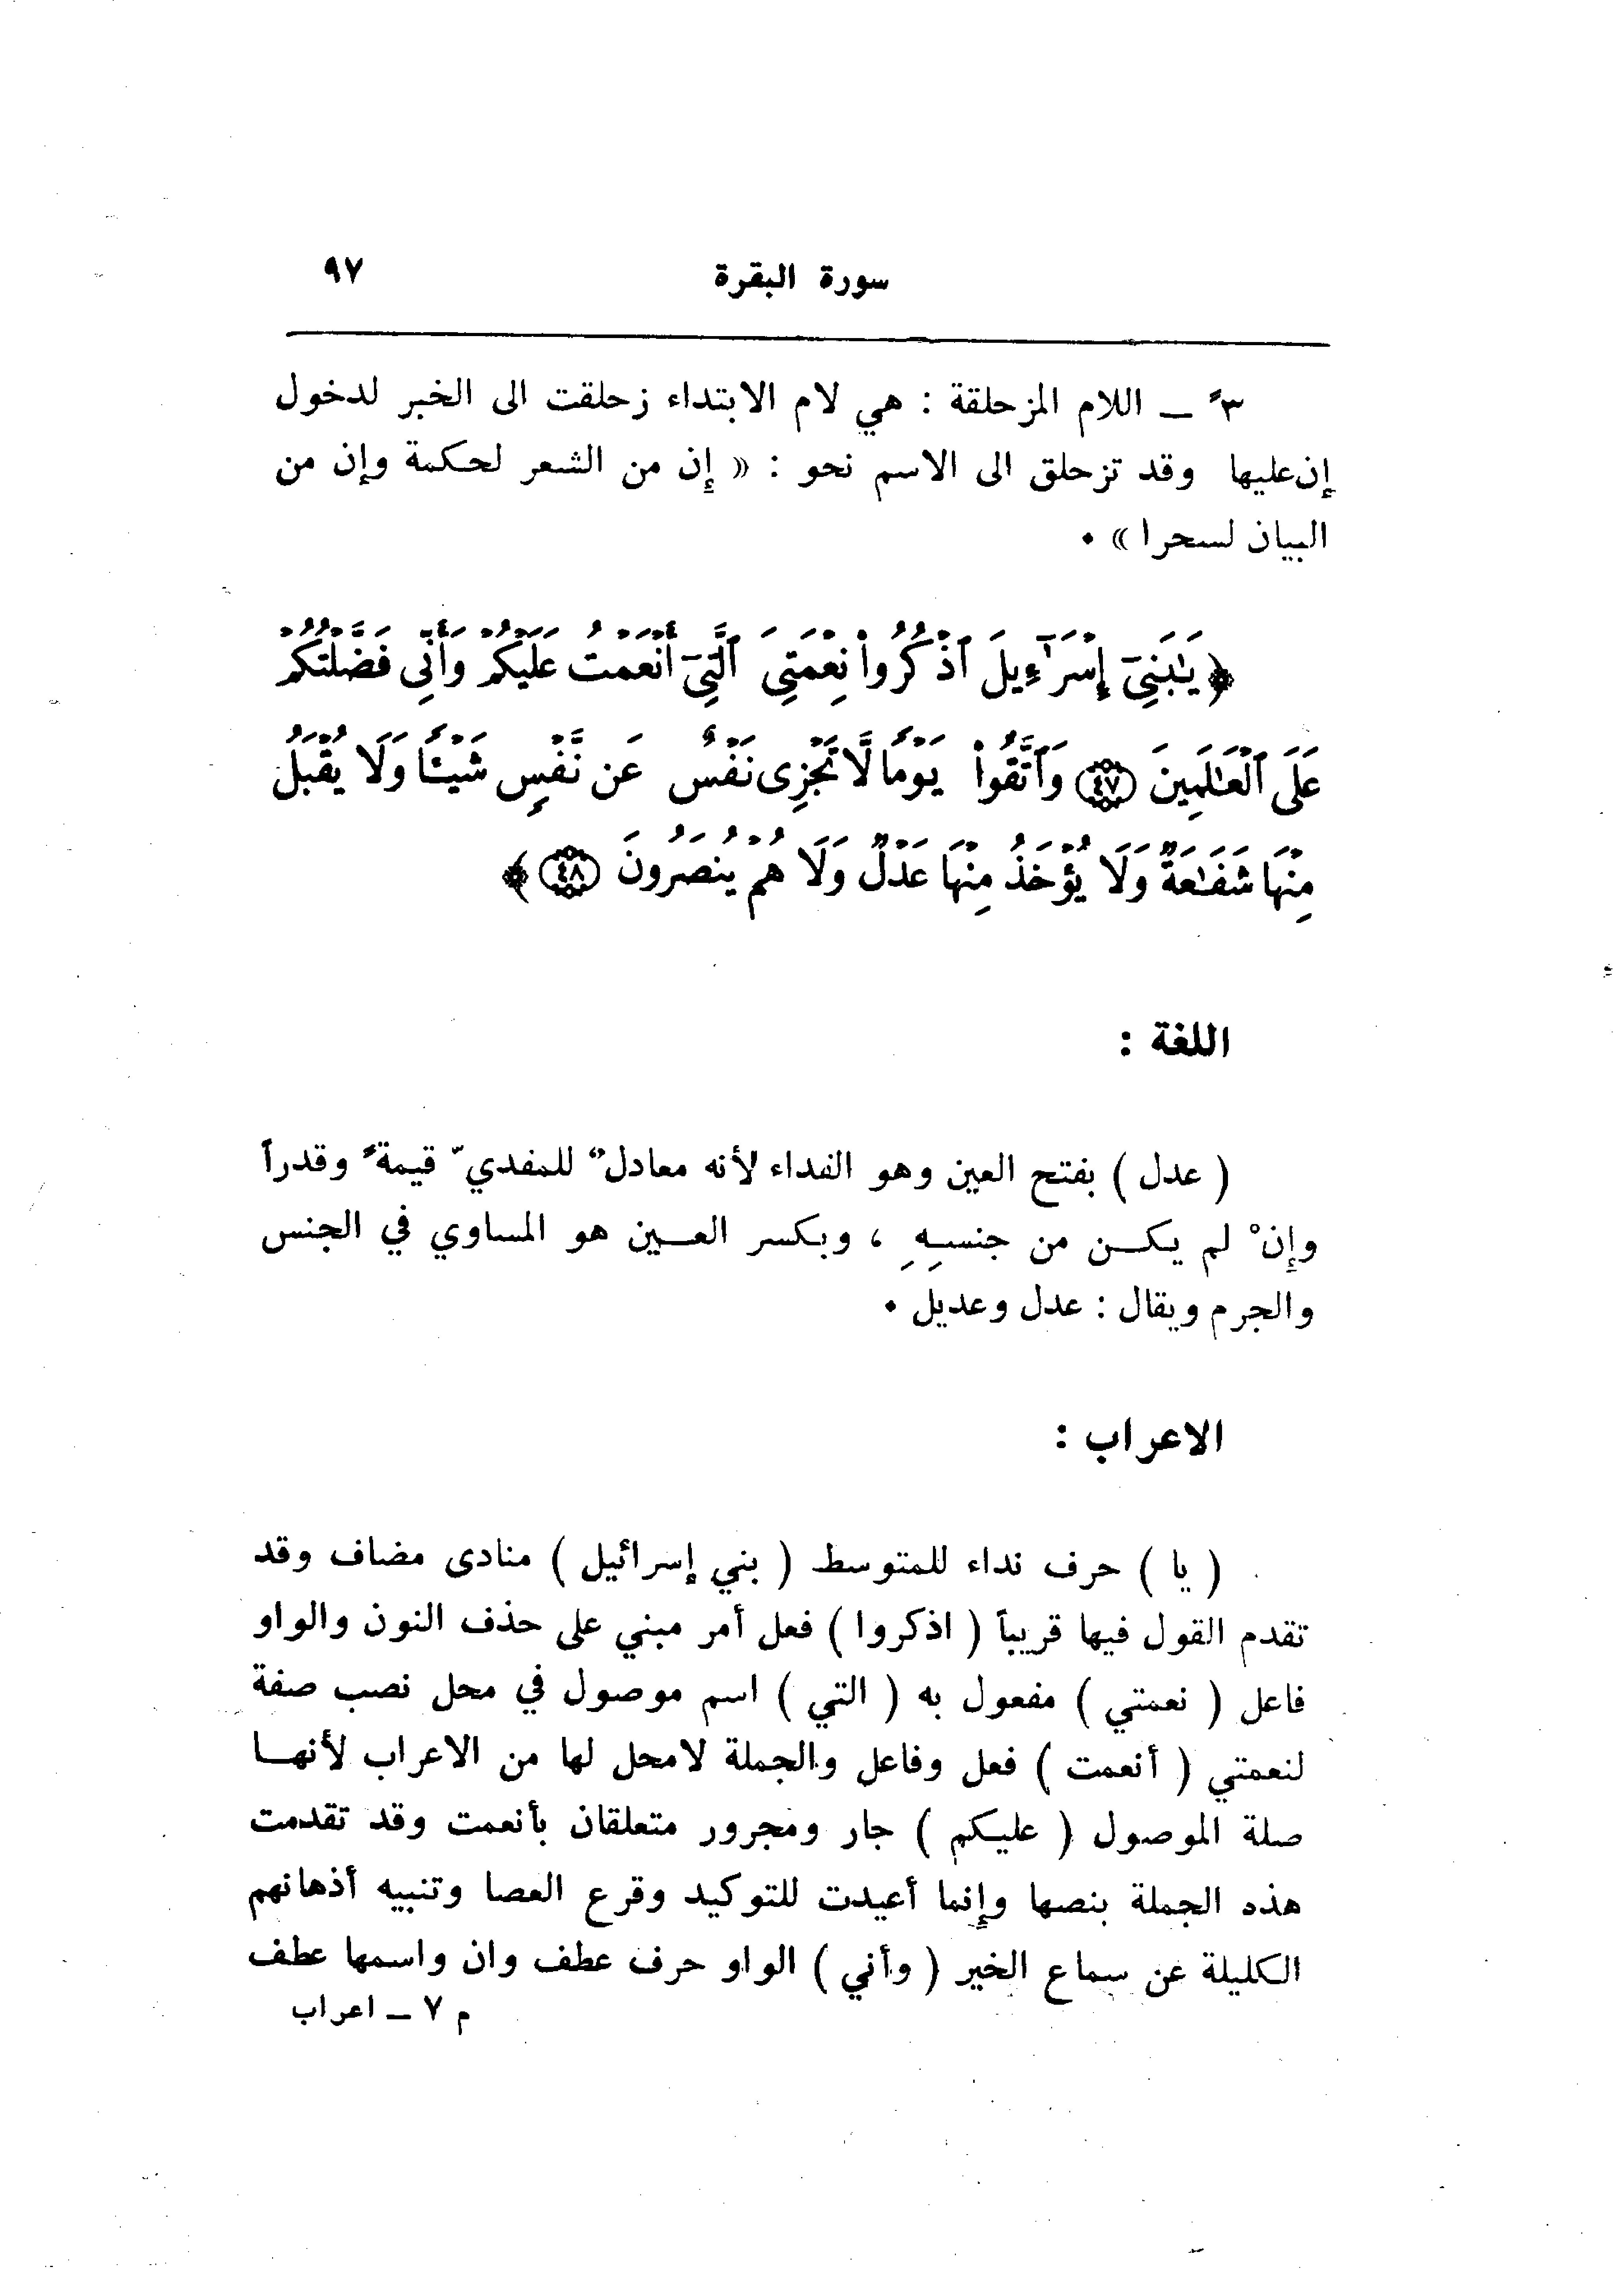 سورة البقرة ٩٧
٣ً ــ اللام المزحلقة : هي لام الابتداء زحلقت الى الخبر لدخول
إن عليها وقد تزحلق الى الاسم نحو : « إن من الشعر لحكمة وإن من
البيان لسحرا » ٠
﴿ يَٰبَنِىٓ إِسْرَٰٓءِيلَ ٱذْكُرُوا۟ نِعْمَتِىَ ٱلَّتِىٓ أَنْعَمْتُ عَلَيْكُمْ وَأَنِّى فَضَّلْتُكُمْ
عَلَى ٱلْعَٰلَمِينَ ﴿٤٧﴾ وَٱتَّقُوا۟ يَوْمًا لَّا تَجْزِى نَفْسٌ عَن نَّفْسٍ شَيْـًٔا وَلَا يُقْبَلُ
مِنْهَا شَفَٰعَةٌ وَلَا يُؤْخَذُ مِنْهَا عَدْلٌ وَلَا هُمْ يُنصَرُونَ ﴿٤٨﴾ ﴾
اللغة :
( عدل ) بفتح العين وهو الفداء لأنه معادلٌ للمفديّ قيمةً وقدراً
وإنْ لم يكـــن من جنسـِـهِ ، وبكسر العـــين هو المساوي في الجنس
والجرم ويقال : عدل وعديل ٠
الاعراب :
( يا ) حرف نداء للمتوسط ( بني إسرائيل ) منادى مضاف وقد
تقدم القول فيها قريباً ( اذكروا ) فعل أمر مبني على حذف النون والواو
فاعل ( نعمتي ) مفعول به ( التي ) اسم موصول في محل نصب صفة
لنعمتي ( أنعمت ) فعل وفاعل والجملة لامحل لها من الاعراب لأنهــا
صلة الموصول ( عليكم ) جار ومجرور متعلقان بأنعمت وقد تقدمت
هذه الجملة بنصها وإنما أعيدت للتوكيد وقرع العصا وتنبيه أذهانهم
الكليلة عن سماع الخير ( وأني ) الواو حرف عطف وان واسمها عطف
م ٧ ــ اعراب